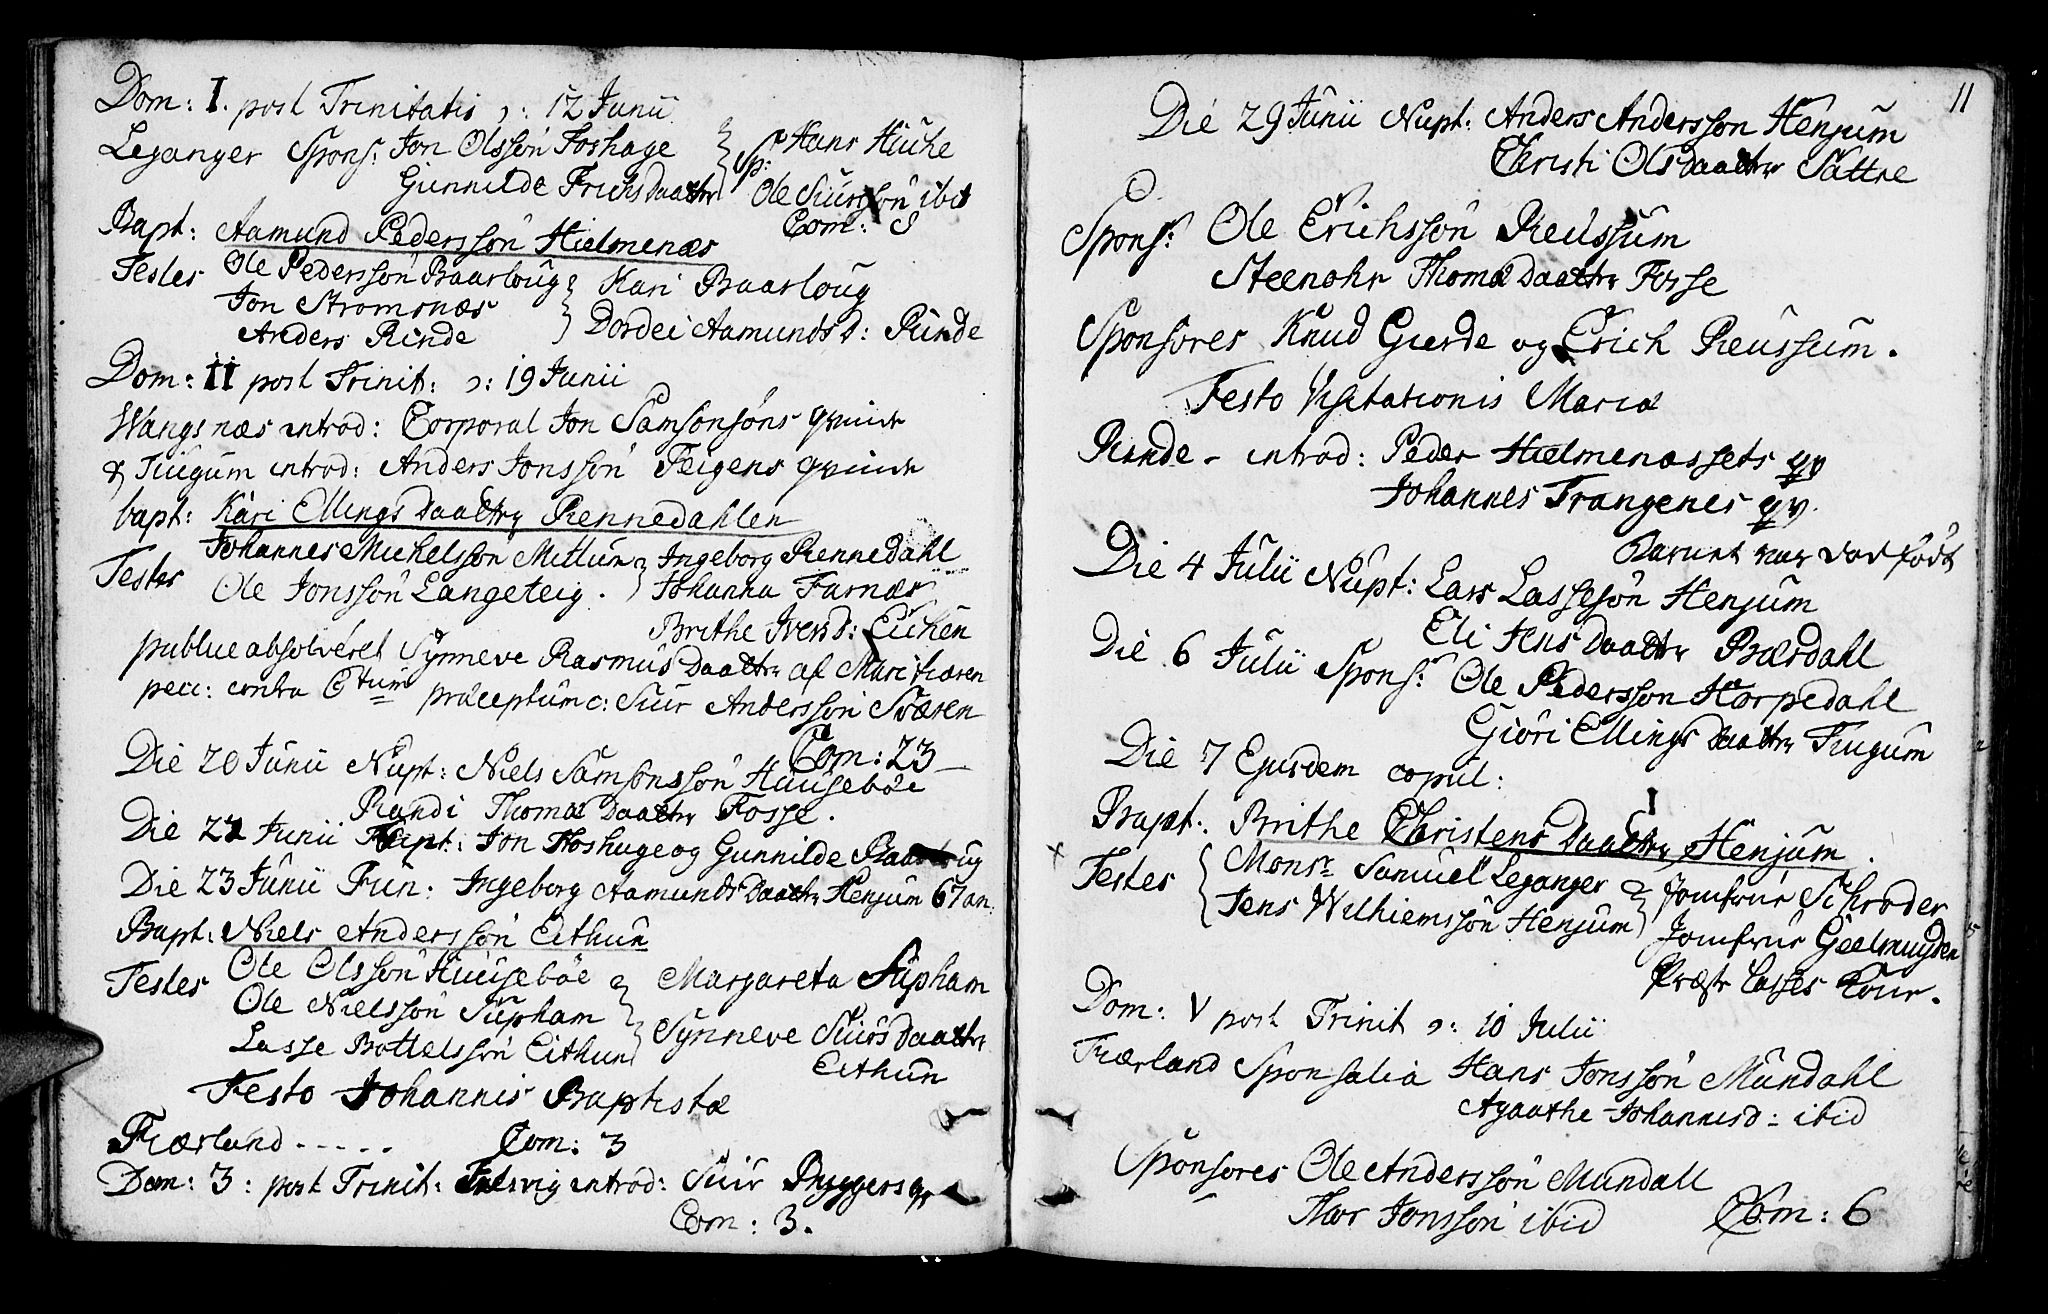 Dom: I. post Trinitatis ɔ: 12 Junii
Leganger Spons: Jon Olssön Foshage } Sp: Hans Hiuhe
Gunnilde Frichs Daatter Ole Siursön ibid
Com: 8
Bapt: Aamund Pederssön Hielmenæs
Testes Ole Pederssön Baarloug } Kari Baarloug
Jon Stromsnæs
Anders Rinde } Dordei Aamunds d: Rinde
Dom: II post Trinit: ɔ: 19 Junii
Wangsnæs introd: Corporal Jon Samsonsöns qvinde
& Tiugum introd: Anders Jonssön Feigens qvinde
bapt: Kari Ellings Daatter Rennedahlen
Testes Johannes Michelssön Mittun } Ingeborg Rennedahl
Ole Jonssön Langeteig. } Johanna Farnæs
Brithe Ivers d: Eichen
publice absolveret Synneve Rasmus Daatter af Mari fiæren
pecc: contra 6tum præceptum c: Siur Anderssön Sværen
Com: 23
Die 20 Junii Nupt: Niels Samsonssön Huusebøe
Randi Thomæ Daatter Fosse.
Die 22 Junii Nupt: Jon Foshage og Gunnilde Baarloug
Die 23 Junii Fun: Ingeborg Aamunds Daatter Henjum 67 an:
Bapt: Niels Anderssön Eithun
Testes Ole Olssön Huusebøe } Margareta Supham
Ole Nielssön Supham
Lasse Bottelssön Eithun } Synneve Siurs Daatter
Eithun
Festo Johannis Baptistæ
Fiærland - - - - - Com: 3
Dom: 3: post Trinit: introd: Siur qv
Com: 3.
11
Die 29 Junii Nupt: Anders Anderssön Henjum
Christi Ols Daatter Sattre
Spons: Ole Erichssön Reussum
Steenohr Thomæ Daatter Fosse
Sponsores Knud Gierde og Erich Reussum.
Festo Visitationis Mariæ
Rinde - introd: Peder Hielmenæssets qv
Johannes Trangenes qv.
Barnet var død født
Die 4 Julii Nupt: Lars Lassesön Henjum
Eli Jens Daatter Bærdahl
Die 6 Julii Spons: Ole Pederssön Horpedahl
Giöri Ellings Daatter Tiugum
Die 7 Ejusdem copul:
Bapt: Brithe Christens Daatter Henjum.
Testes { Monsr Samuel Leganger } Jomfrue Schrøder
Jens Wilhiemssön Henjum } Jomfrue Geelmuyden
Præstr Lasses
Dom: V post Trinit ɔ: 10 Julii
Fiærland Sponsalia Hans Jonssön Mundahl
Agaathe Johannes d: ibid
Sponsores Ole Anderssön Mundall
Thor Jonssön ibid Com: 6